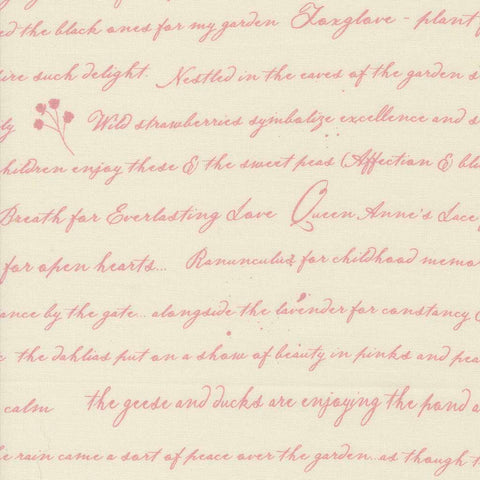 ed the black ones for my garden Foxglove - plant
ire such delight. Nestled in the eaves of the garden s
ly Wild strawberries symbolize excellence and s
children enjoy these & the sweet peas (Affection & blu
Breath for Everlasting Love Queen Anne's Lace
for open hearts... Ranunculus for childhood memo
ance by the gate... alongside the lavender for constancy
the dahlias put on a show of beauty in pinks and pea
calm the geese and ducks are enjoying the pond a
e rain came a sort of peace over the garden...as though t